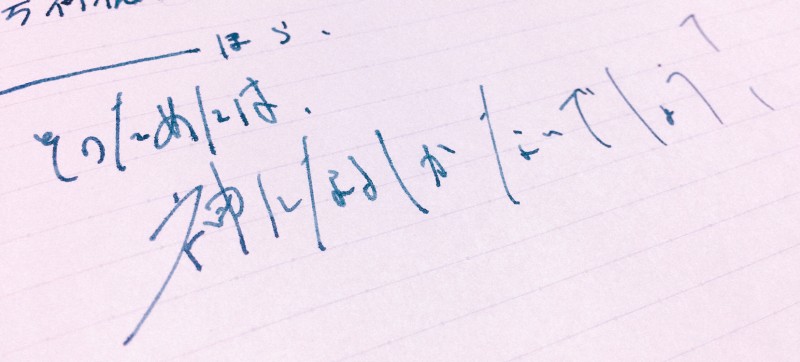 ――ほら、
そのためには、
神になるしかないでしょう、